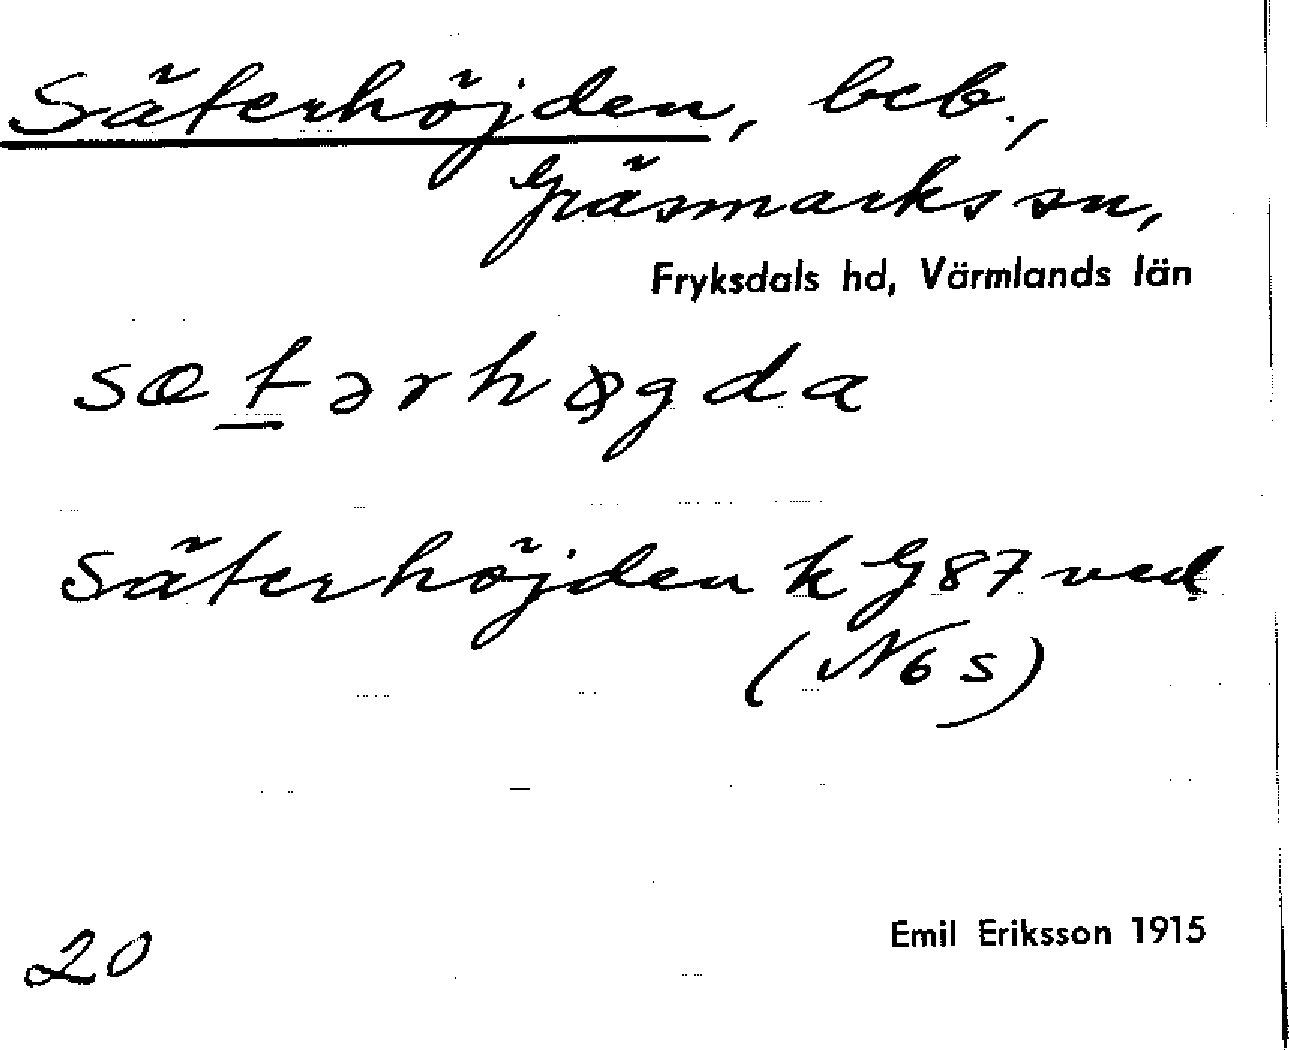 Säterhöjden, beb.,
Gräsmarks sn,
Fryksdals hd, Värmlands län
sætərhøgda
Säterhöjden k G87 ved
(N6s)
20
Emil Eriksson 1915